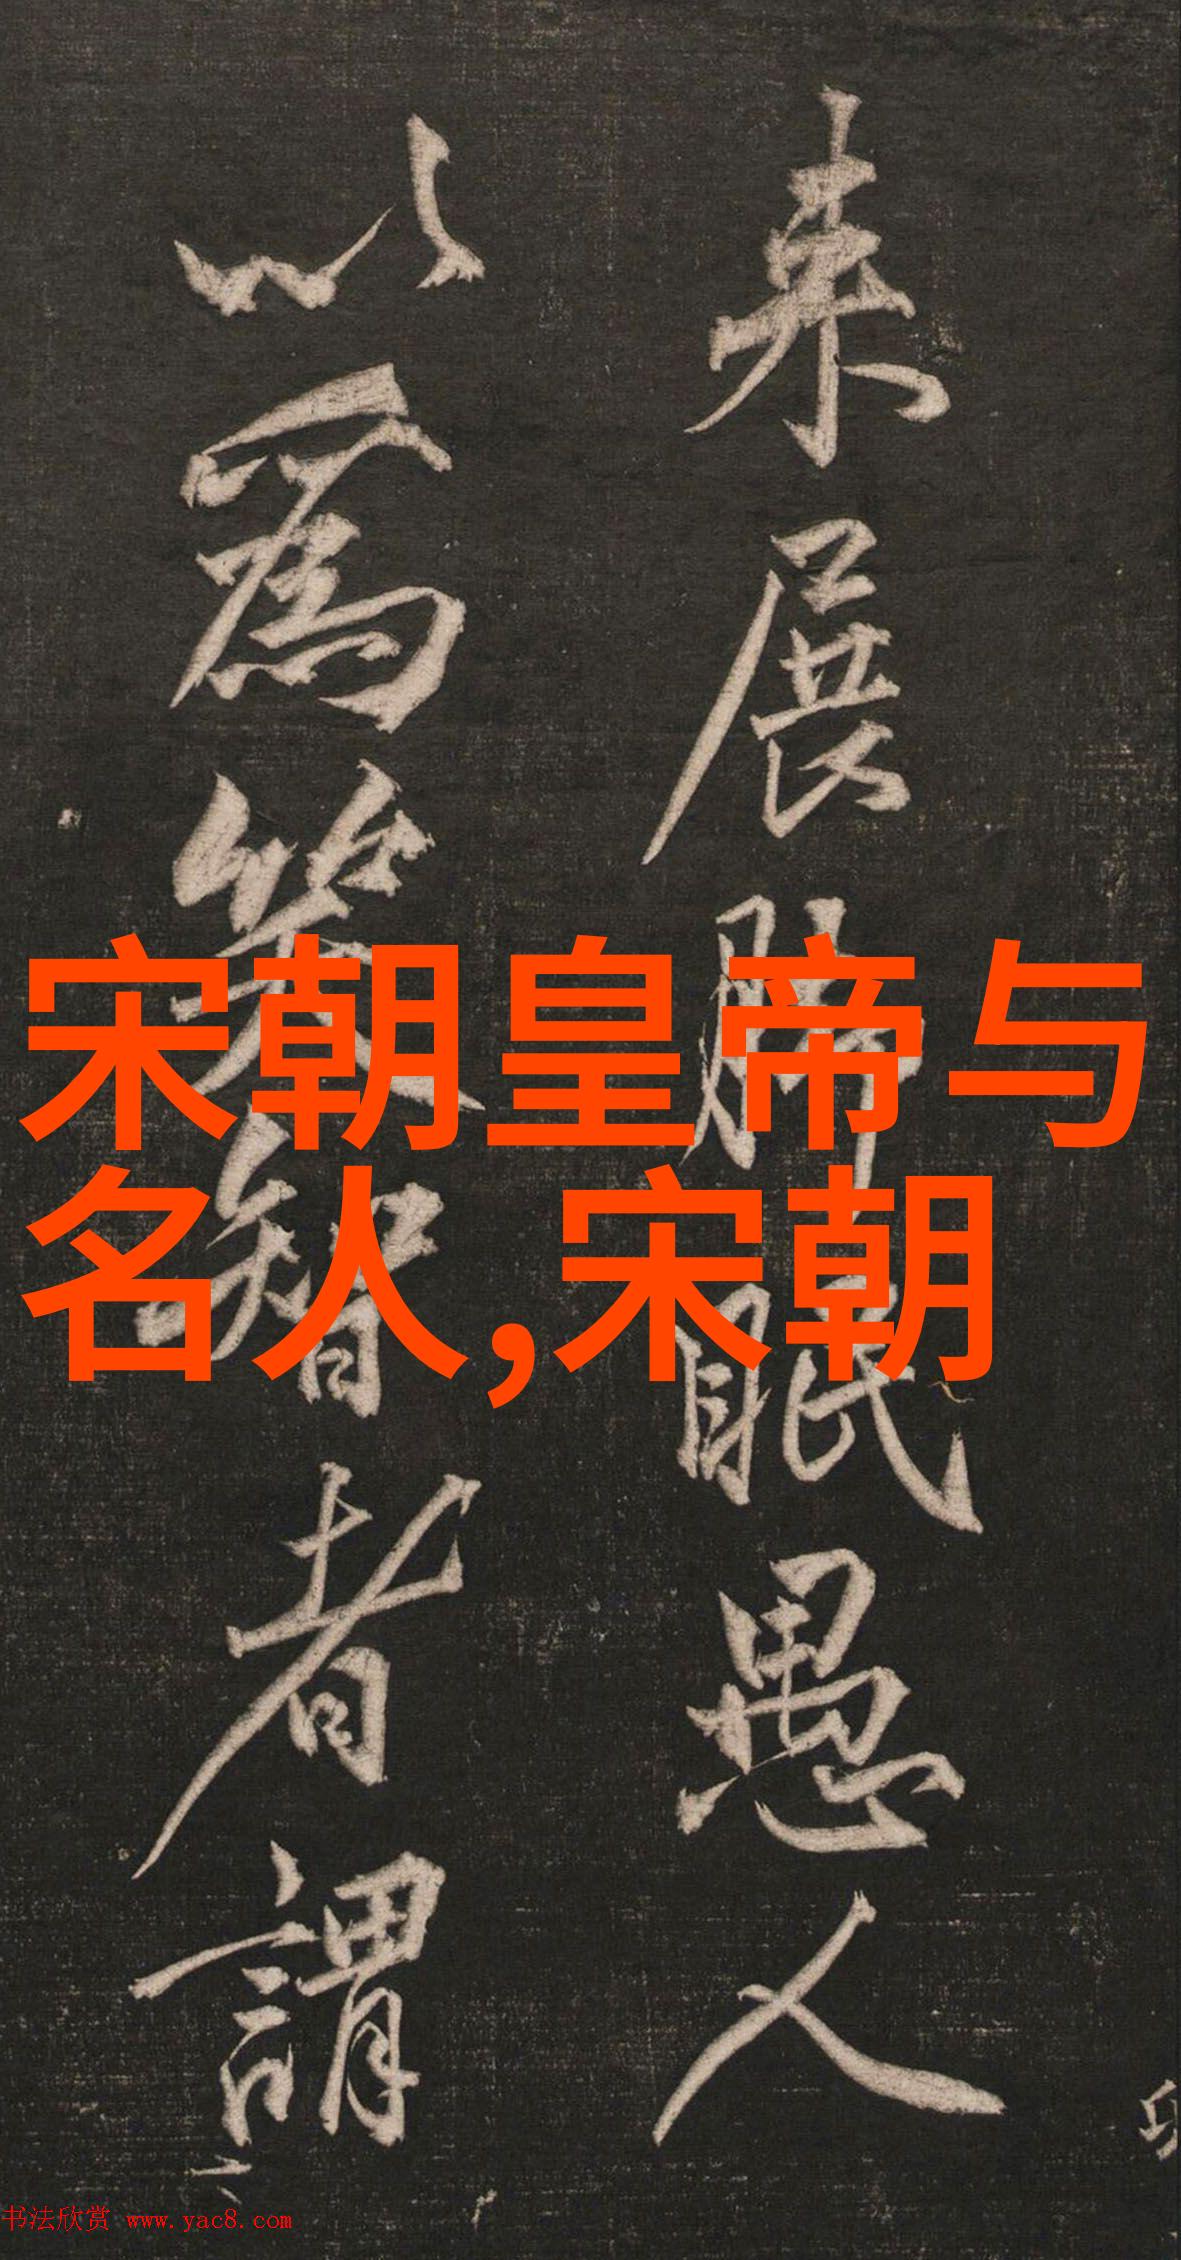 来展脚眠愚人
以為笑智者謂
宋朝皇帝与
名人,宋朝
书法欣赏 www.yac8.com